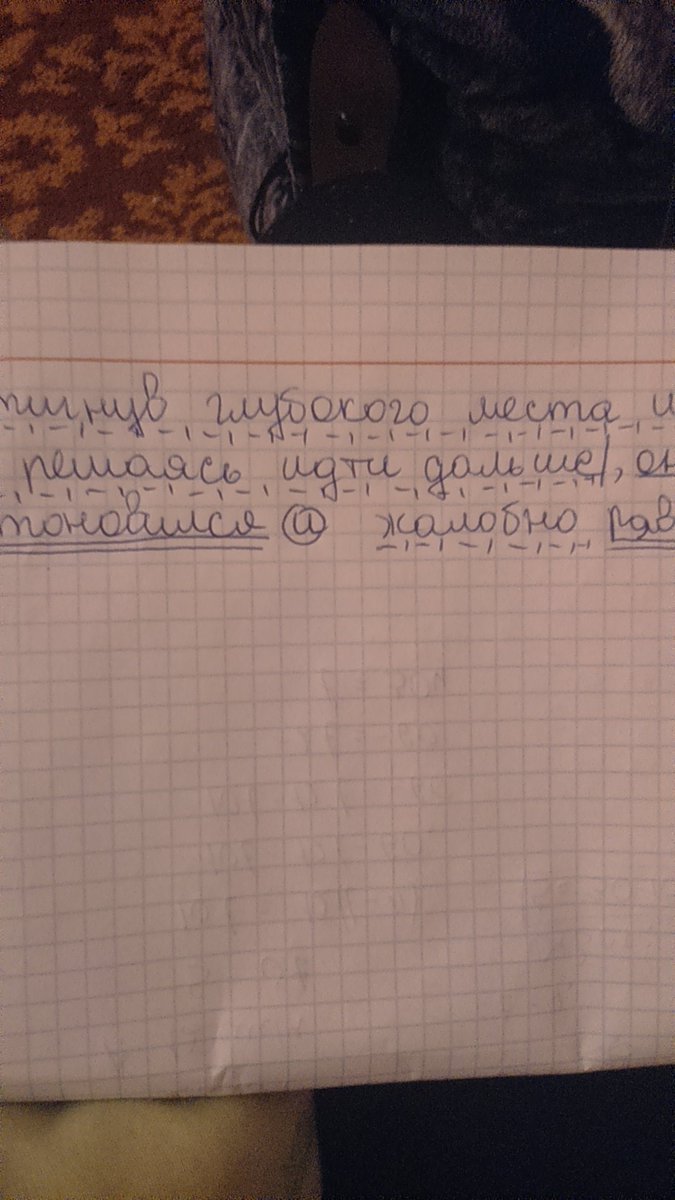 тигнув глубокого места и
решаясь идти дальше, он
тоновился и жалобно рав